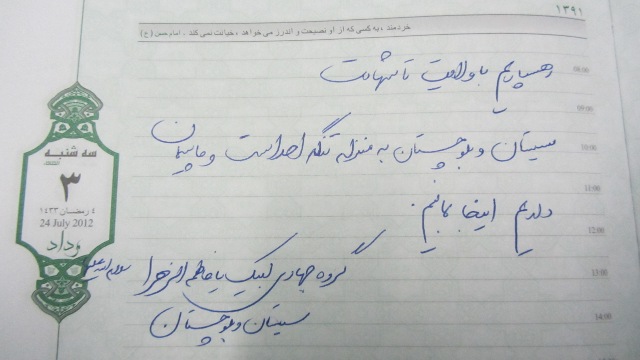 ۱۳۹۱
خردمند ، به کسی که از او نصیحت و اندرز می‌خواهد ، خیانت نمی کند . امام حسن (ع)
رهسپاریم با ولایت تا شهادت
08:00
09:00
سیستان و بلوچستان به منزله تنگه احد است و ما پیمان
10:00
11:00
داریم اینجا بمانیم.
12:00
گروه جهادی لبیک یا فاطمه الزهرا سلام الله علیها
13:00
سیستان و بلوچستان
14:00
سه شنبه
۳
۴ رمضان ۱۴۳۳
24 July 2012
مرداد